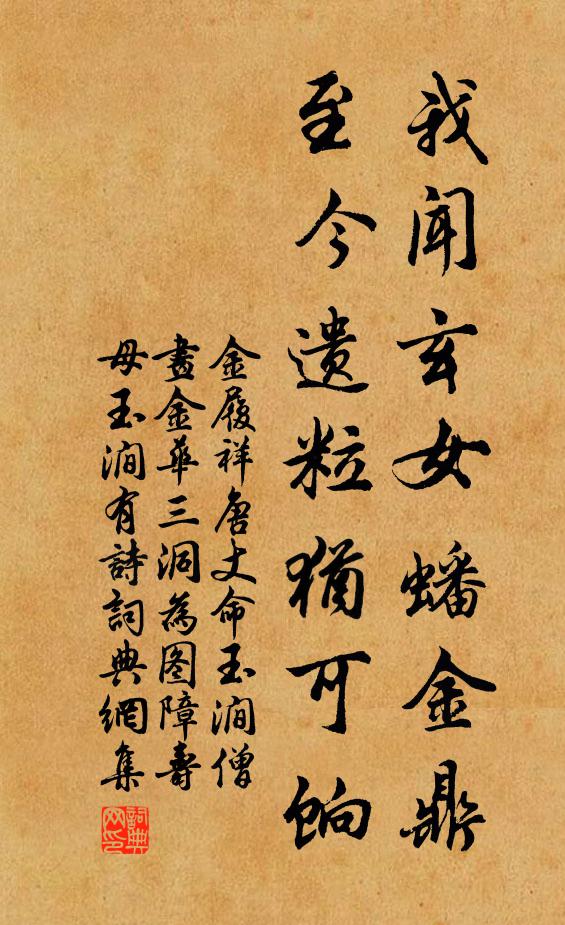 我闻玄女蟠金鼎
至今遗粒犹可饷
金履祥唐丈命玉涧僧
畫金华三洞為图障壽
母玉涧有詩詞典網集
詞典网印